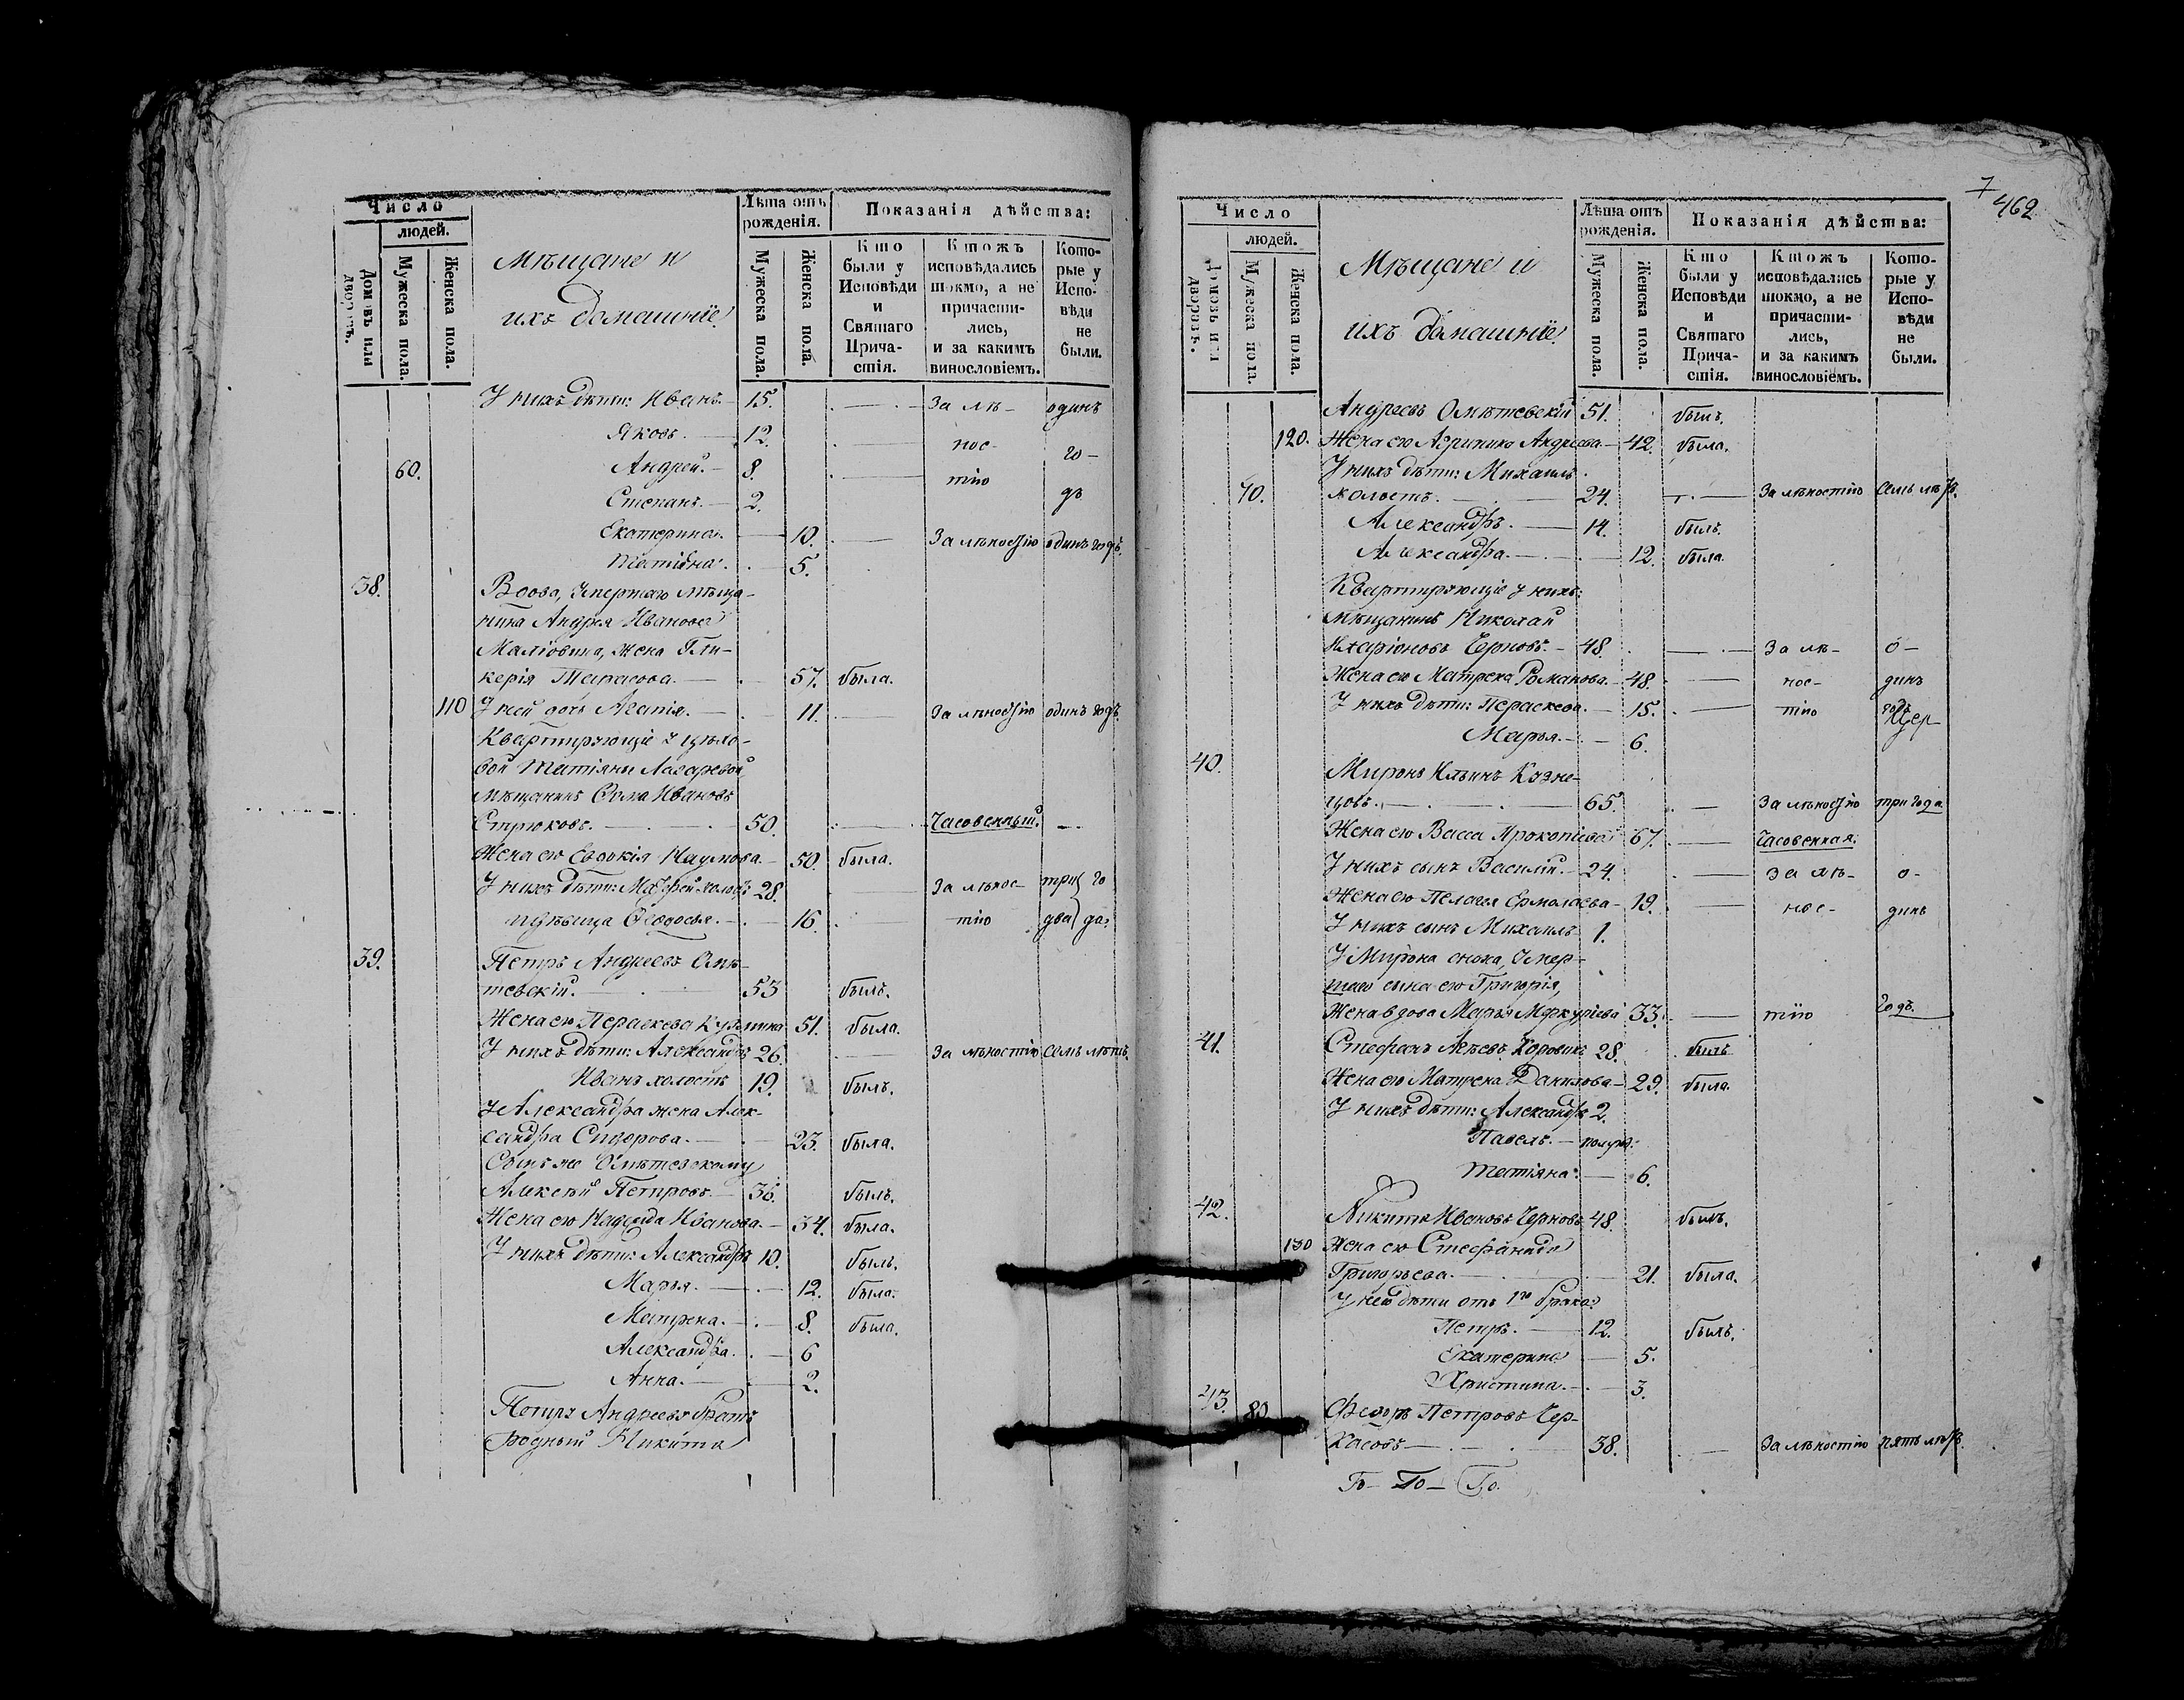 Число
людей.
Домовъ или дворовъ.
Мужеска пола.
Женска пола.
Мѣщане и
ихъ домашніе
Лѣта отъ рожденія.
Мужеска пола.
Женска пола.
Показанія дѣйства:
Кто были у Исповѣди и Святаго Причастія.
Ктожъ исповѣдались токмо, а не причастились, и за какимъ винословіемъ.
Которые у Исповѣди не были.
У нихъ дѣти: Иванъ. 15. За лѣ- одинъ
Яковъ. 12. нос- го-
60. Андрей. 8. тію дъ
Степанъ. 2.
Екатерина. 10. За лѣностію одинъ годъ.
Татіяна. 5.
38. Вдова, умершаго мѣща-
нина Андрея Иванова
жена Гли-
керія Тарасова. 57. была.
110 У ней дочь Агапія. 11. За лѣностію одинъ годъ.
Квартирующіе у
Татіяны Лазаревой
мѣщанинъ Ѳома Ивановъ
Стрюковъ. 50. Часовенный.
Жена его Евдокія Наумова. 50. была.
У нихъ дѣти: 28. За лѣнос- три го
дѣвица Ѳеодосья. 16. тію два да.
39. Петръ Андреевъ Омѣ-
тевскій. 53 былъ.
Жена его Параскева Кузмина 51. была.
У нихъ дѣти: Александръ 26. За лѣностію семь лѣтъ.
Иванъ холостъ 19. былъ.
У Александра жена Алек-
сандра Сидорова. 23. была.
Омѣтевскому
Алексѣй Петровъ. 36. былъ.
Жена его Надежда Иванова. 34. была.
У нихъ дѣти: Александръ 10. былъ.
Марья. 12. была.
Матрена. 8. была.
Александра. 6
Анна. 2.
Петръ Андреевъ братъ
родный Никита
7
462
Число
людей.
Домовъ или дворовъ.
Мужеска пола.
Женска пола.
Мѣщане и
ихъ домашніе
Лѣта отъ рожденія.
Мужеска пола.
Женска пола.
Показанія дѣйства:
Кто были у Исповѣди и Святаго Причастія.
Ктожъ исповѣдались токмо, а не причастились, и за какимъ винословіемъ.
Которые у Исповѣди не были.
Андреевъ Омѣтевскій 51. былъ.
120. Жена его Агрипина Андреева. 42. была.
У нихъ дѣти: Михаилъ
70. холостъ. 24. За лѣностію семь лѣтъ.
Александръ. 14. былъ.
Александра. 12. была.
Квартирующіе у нихъ:
мѣщанинъ Николай
Иларіоновъ Черновъ. 48. За лѣ- о-
Жена его Матрена Романова. 48. нос- динъ
У нихъ дѣти: Параскева. 15. тію годъ
Марья. 6.
40. Миронъ Ильинъ Кузне-
цовъ. 65. За лѣностію три года
Жена его Васса Прокопіева 67. Часовенная.
У нихъ сынъ Василій. 24. За лѣ- о-
Жена его Пелагея Ермолаева 19. нос- динъ
У нихъ сынъ Михаилъ 1.
У Мирона сноха, умер-
шаго сына его Григорія,
жена вдова Марья Меркуріева 33. тію годъ.
41. Стефанъ 28. былъ
Жена его Матрена Данилова 29. была.
У нихъ дѣти: Александръ 2.
Павелъ. полуг.
Татіяна. 6.
42. Никита Ивановъ Черновъ 48. былъ.
130 Жена его Стефанида
Григорьева. 21. была.
У нея дѣти отъ 1го брака:
Петръ. 12. былъ.
Екатерина 5.
Христина. 3.
43. 80 Ѳедоръ Петровъ Чер-
касовъ 38. За лѣностію пять лѣтъ.